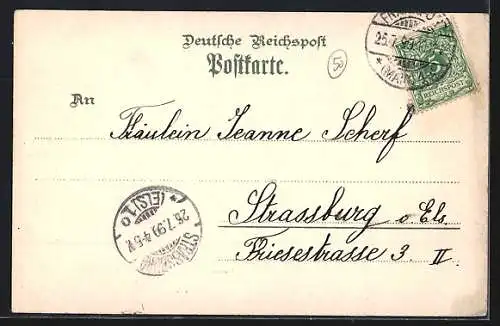 Deutsche Reichspost
Postkarte.
50
An
Fräulein Jeanne Scherf
Strassburg o Els.
Friesestrasse 3 II
REICHSPOST
25.7.99
(MAIN)
STRASSBURG
26.7.99.4-5N.
*(ELS)1 o